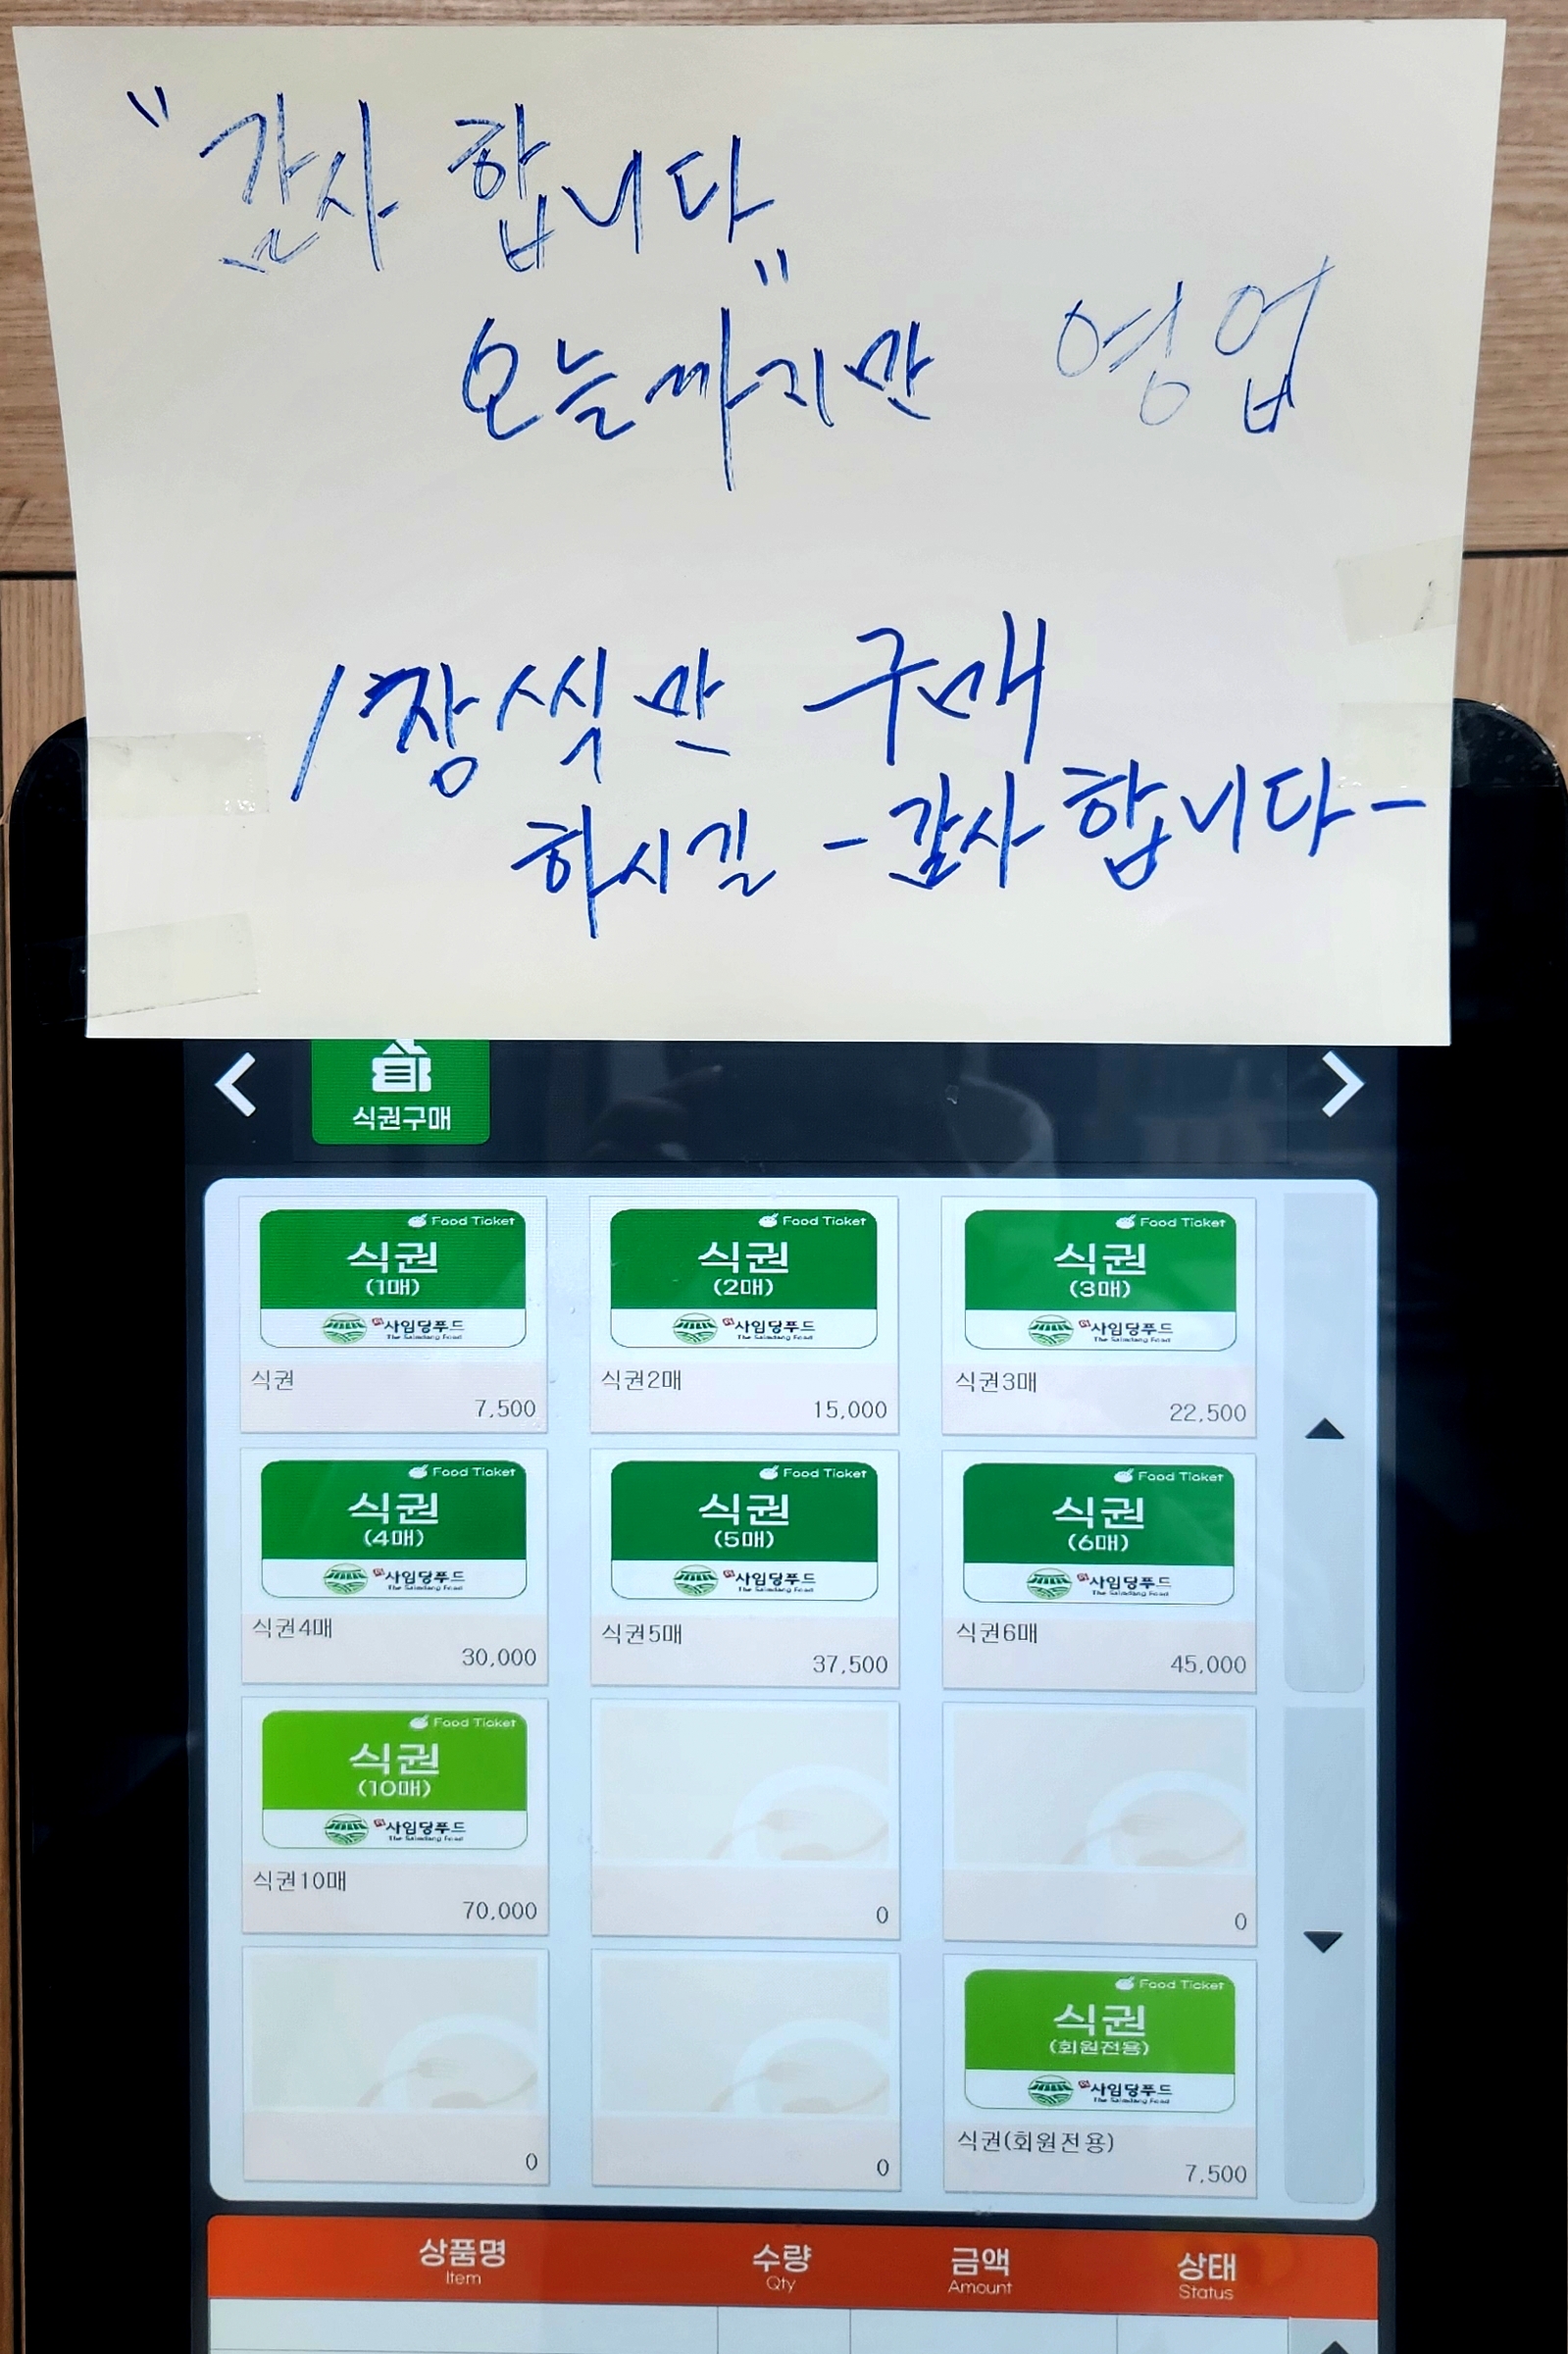 "감사 합니다"
오늘까지만 영업
1장씩만 구매
하시길 -감사합니다-
식권구매
Food Ticket
식권
(1매)
사임당푸드
The Saimdang Food
식권
7,500
Food Ticket
식권
(2매)
사임당푸드
The Saimdang Food
식권2매
15,000
Food Ticket
식권
(3매)
사임당푸드
The Saimdang Food
식권3매
22,500
Food Ticket
식권
(4매)
사임당푸드
The Saimdang Food
식권4매
30,000
Food Ticket
식권
(5매)
사임당푸드
The Saimdang Food
식권5매
37,500
Food Ticket
식권
(6매)
사임당푸드
The Saimdang Food
식권6매
45,000
Food Ticket
식권
(10매)
사임당푸드
The Saimdang Food
식권10매
70,000
0
0
0
0
Food Ticket
식권
(회원전용)
사임당푸드
The Saimdang Food
식권(회원전용)
7,500
상품명 수량 금액 상태
Item Qty Amount Status